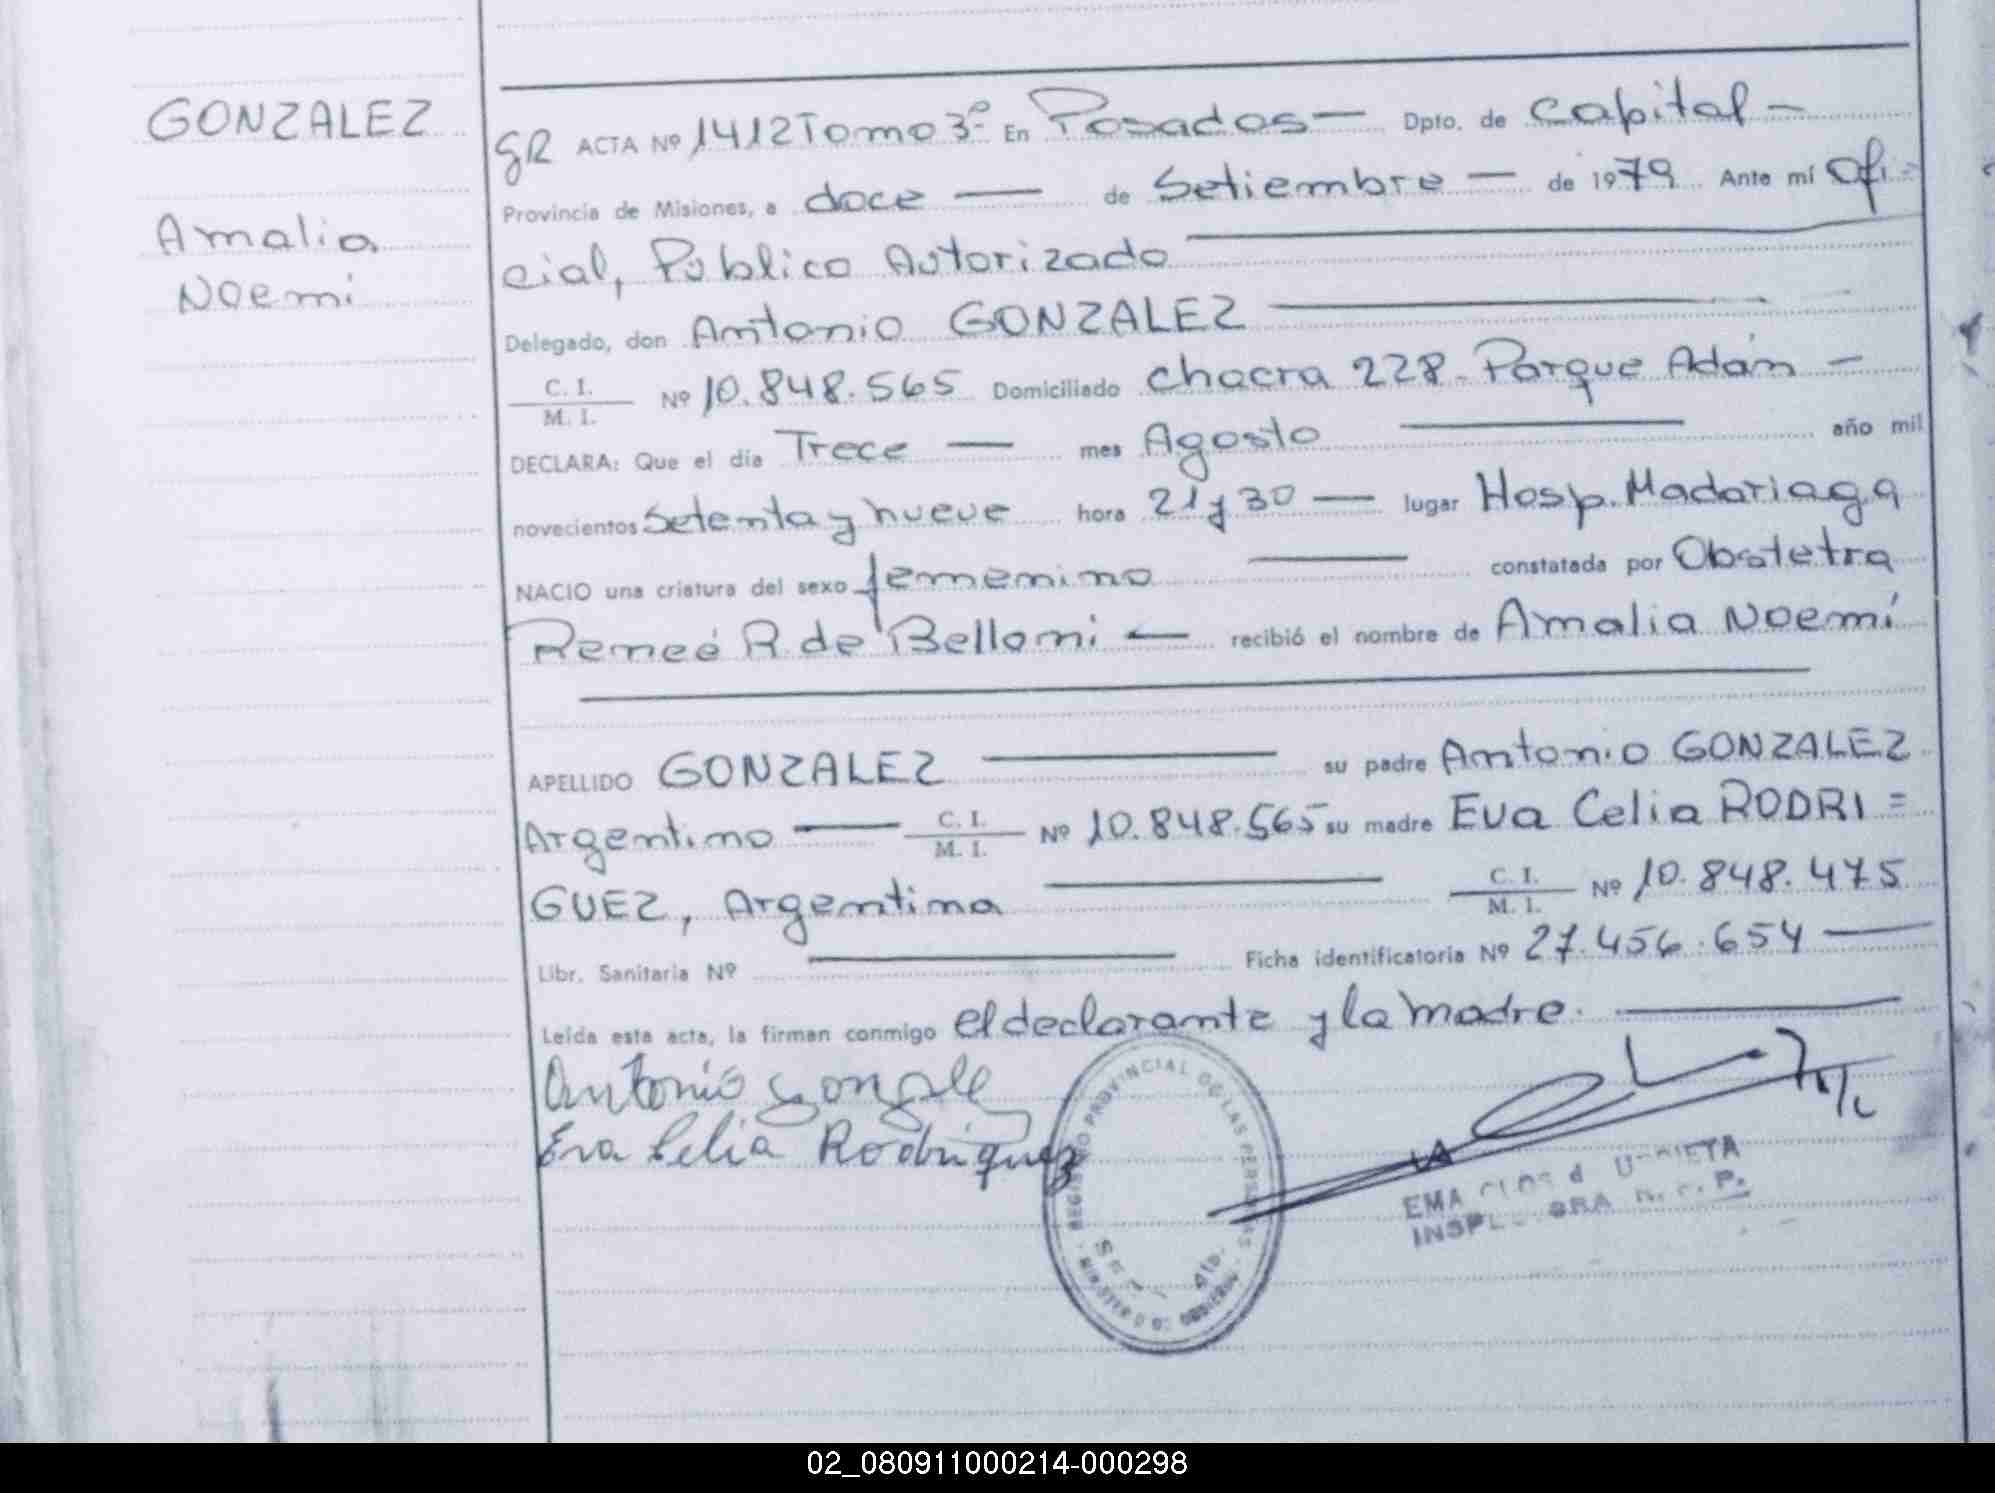 GONZALEZ
Amalia
Noemi
GR ACTA Nº 1412 Tomo 3º En Posadas — Dpto. de Capital —
Provincia de Misiones, a doce — de Setiembre — de 1979 Ante mí Ofi=
cial, Público Autorizado
Delegado, don Antonio GONZALEZ
C. I.
M. I. Nº 10.848.565 Domiciliado chacra 228 - Parque Adán —
DECLARA: Que el día Trece — mes Agosto — año mil
novecientos setenta y nueve hora 21 y 30 — lugar Hosp. Madariaga
NACIO una criatura del sexo femenino — constatada por Obstetra
Reneé R. de Belloni — recibió el nombre de Amalia Noemí
APELLIDO GONZALEZ — su padre Antonio GONZALEZ
Argentino — C. I. M. I. Nº 10.848.565 su madre Eva Celia RODRI =
GUEZ, Argentina — C. I. M. I. Nº 10.848.475
Libr. Sanitaria Nº — Ficha identificatoria Nº 27.456.654 —
Leída esta acta, la firman conmigo el declarante y la madre. —
Antonio Gonzalez
Eva Celia Rodriguez
REGISTRO PROVINCIAL DE LAS PERSONAS
EMA
INSPECTORA R. P. P.
02_080911000214-000298